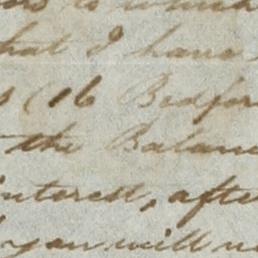 to which
that I have
(16 Bedfor
the Balanc
interest, afte
you will n